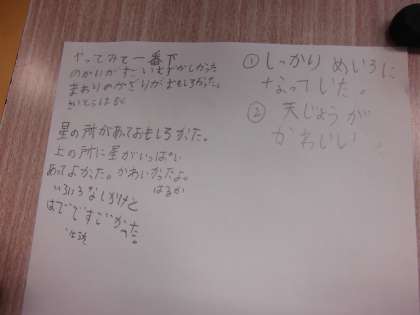 やってみて一番下
のかいがすごいむずかしかった
まわりのかざりがおもしろかった。
星の所があっておもしろかた。
上の所に星がいっぱい
あってよかった。かわいかったよ。
はるか
いろいろなしかけと
はでですごかった。
① しっかりめいろに
なってした。
② 天じょうが
かわいい。